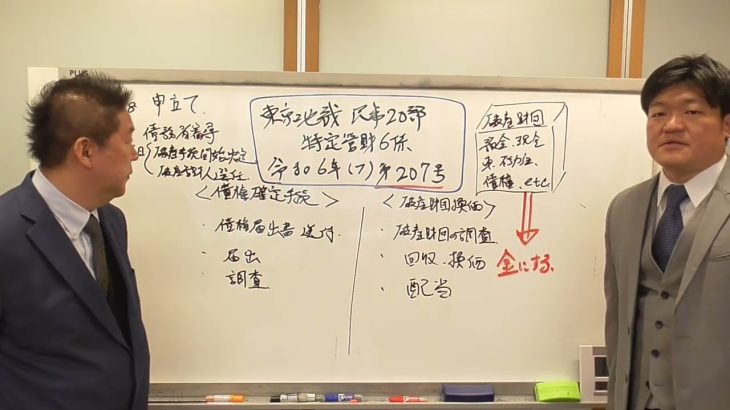 PLUS
8 申立て.
債務者審尋
破産手続開始決定
破産管財人選任
東京地裁 民事20部
特定管財6係
令和6年(フ)第207号
破産財団
預金、現金
車、不動産
債権、etc
<債権確定手続>
・債権届出書 送付
・届出
・調査
<破産財団換価>
・破産財団の調査
・回収、換価
・配当
金にする.